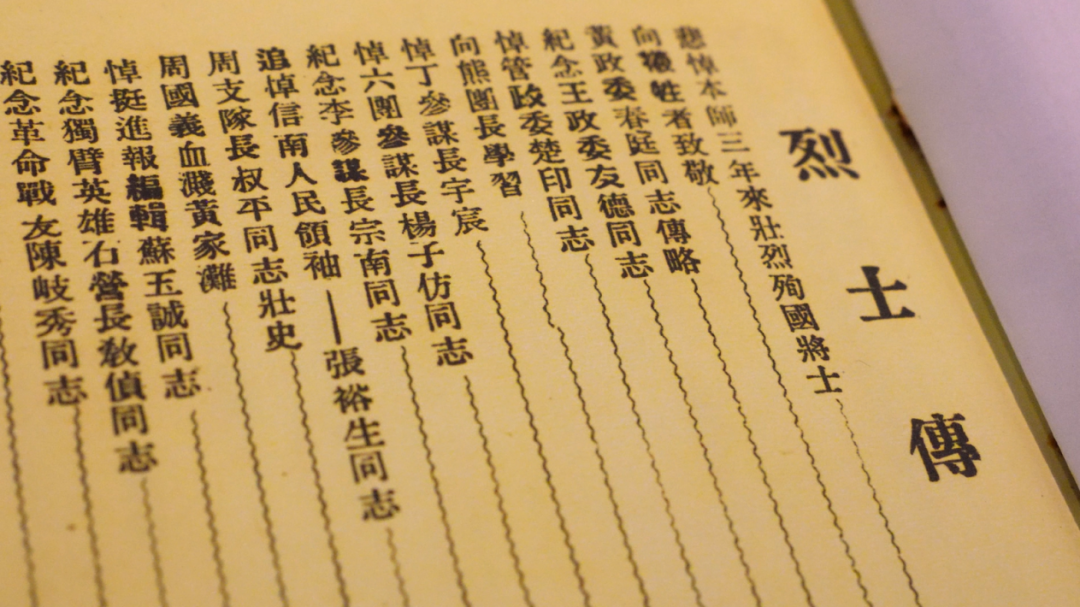 烈士傳
悲悼本師三年來壯烈殉國將士
向犧牲者致敬
黃政委春庭同志傳略
紀念王政委友德同志
悼管政委楚印同志
向熊團長學習
悼丁參謀長宇宸
悼六團參謀長楊子仿同志
紀念李參謀長宗南同志
追悼信南人民領袖——張裕生同志
周支隊長叔平同志壯史
周國義血濺黃家灘
悼挺進報編輯蘇玉誠同志
紀念獨臂英雄石營長敎偵同志
紀念革命戰友陳岐秀同志